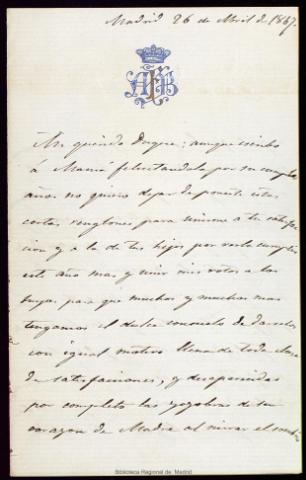 Madrid 26 de Abril de 1867.
Mi querido Duque: aunque escribo
á Mamá felicitandola por su cumple
años no quiero dejar de ponerte estos
cortos renglones para unirme a tu satisfac
cion y a la de tus hijos por verla cumplir
este año mas y unir mis votos a los
tuyos para que muchos y muchos mas
tengamos el dulce consuelo de
con igual motivo llena de toda clase
de satisfacciones, y desaparecidas
por completo las zozobras de su
corazon de Madre al mirar el
Biblioteca Regional de Madrid